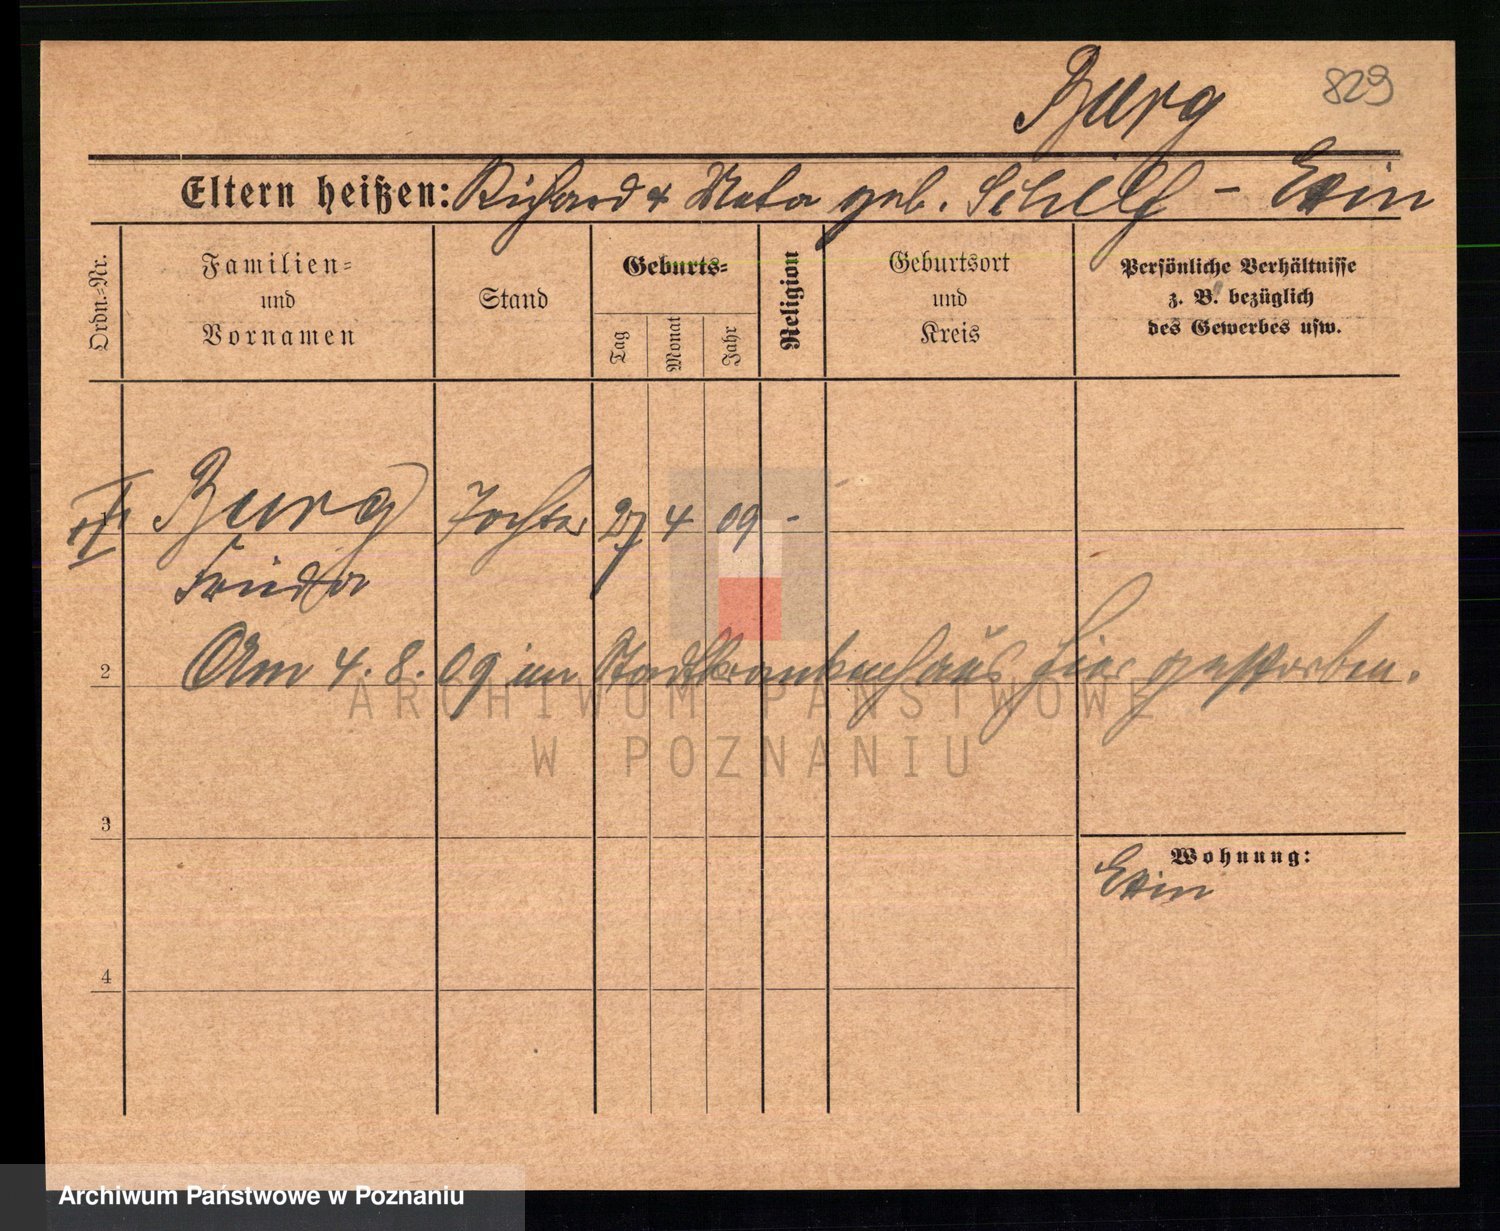 829
Burg
Eltern heißen: Richard & Meta geb. Schilf - Exin
Ordn.-Nr.
Familien-
und
Vornamen
Stand
Geburts-
Tag
Monat
Jahr
Religion
Geburtsort
und
Kreis
Persönliche Verhältnisse
z. B. bezüglich
des Gewerbes usw.
1 Burg Tochter 27 4 09 -
Frieda
2 Am 4. 8. 09 im Stadtkrankenhaus hier gestorben.
ARCHIWUM PAŃSTWOWE
W POZNANIU
3
Wohnung:
Exin
4
Archiwum Państwowe w Poznaniu